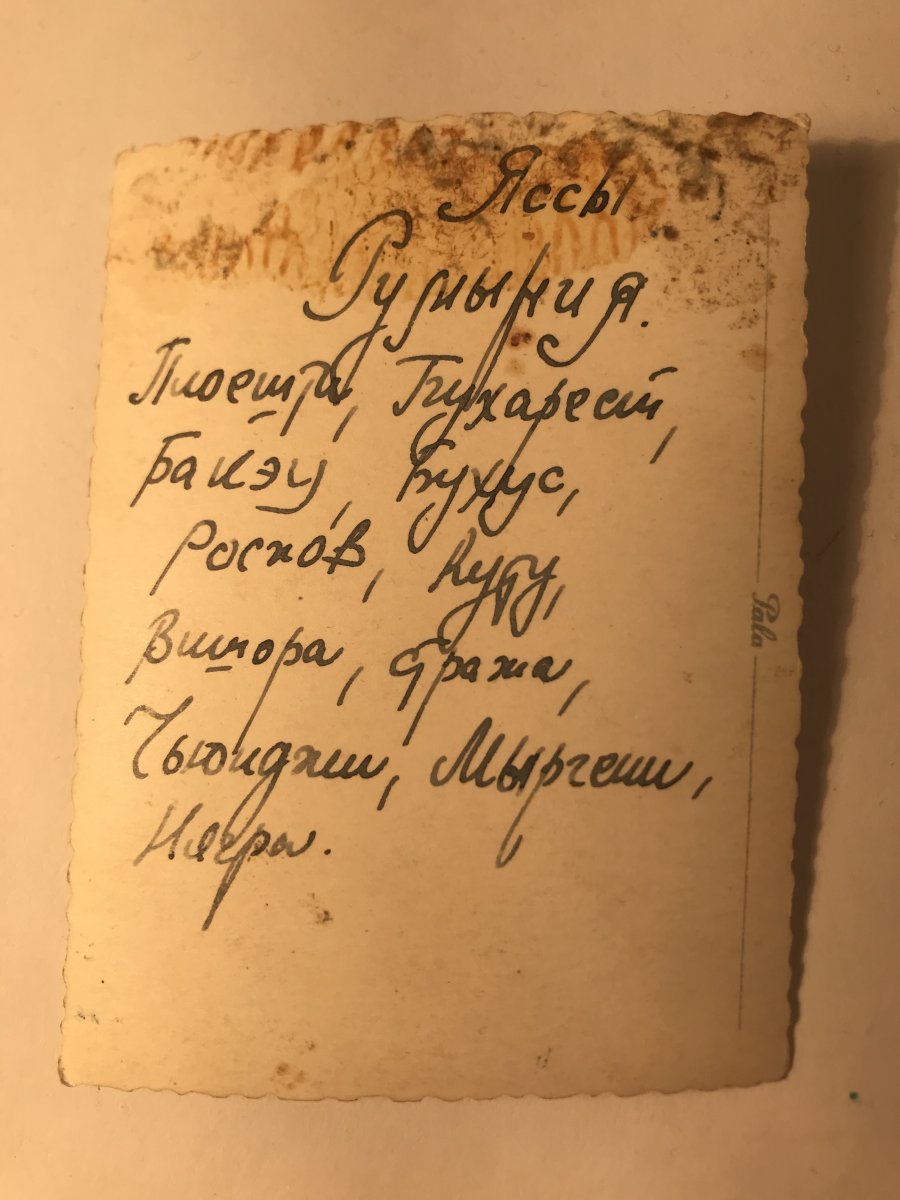 Яссы
Румыния.
Плоешти, Бухарест,
Бакэу, Бухус,
Роснов, Куру,
Вишора, Стража,
Чьюиджи, Мыргеши,
Нягра.
Pala